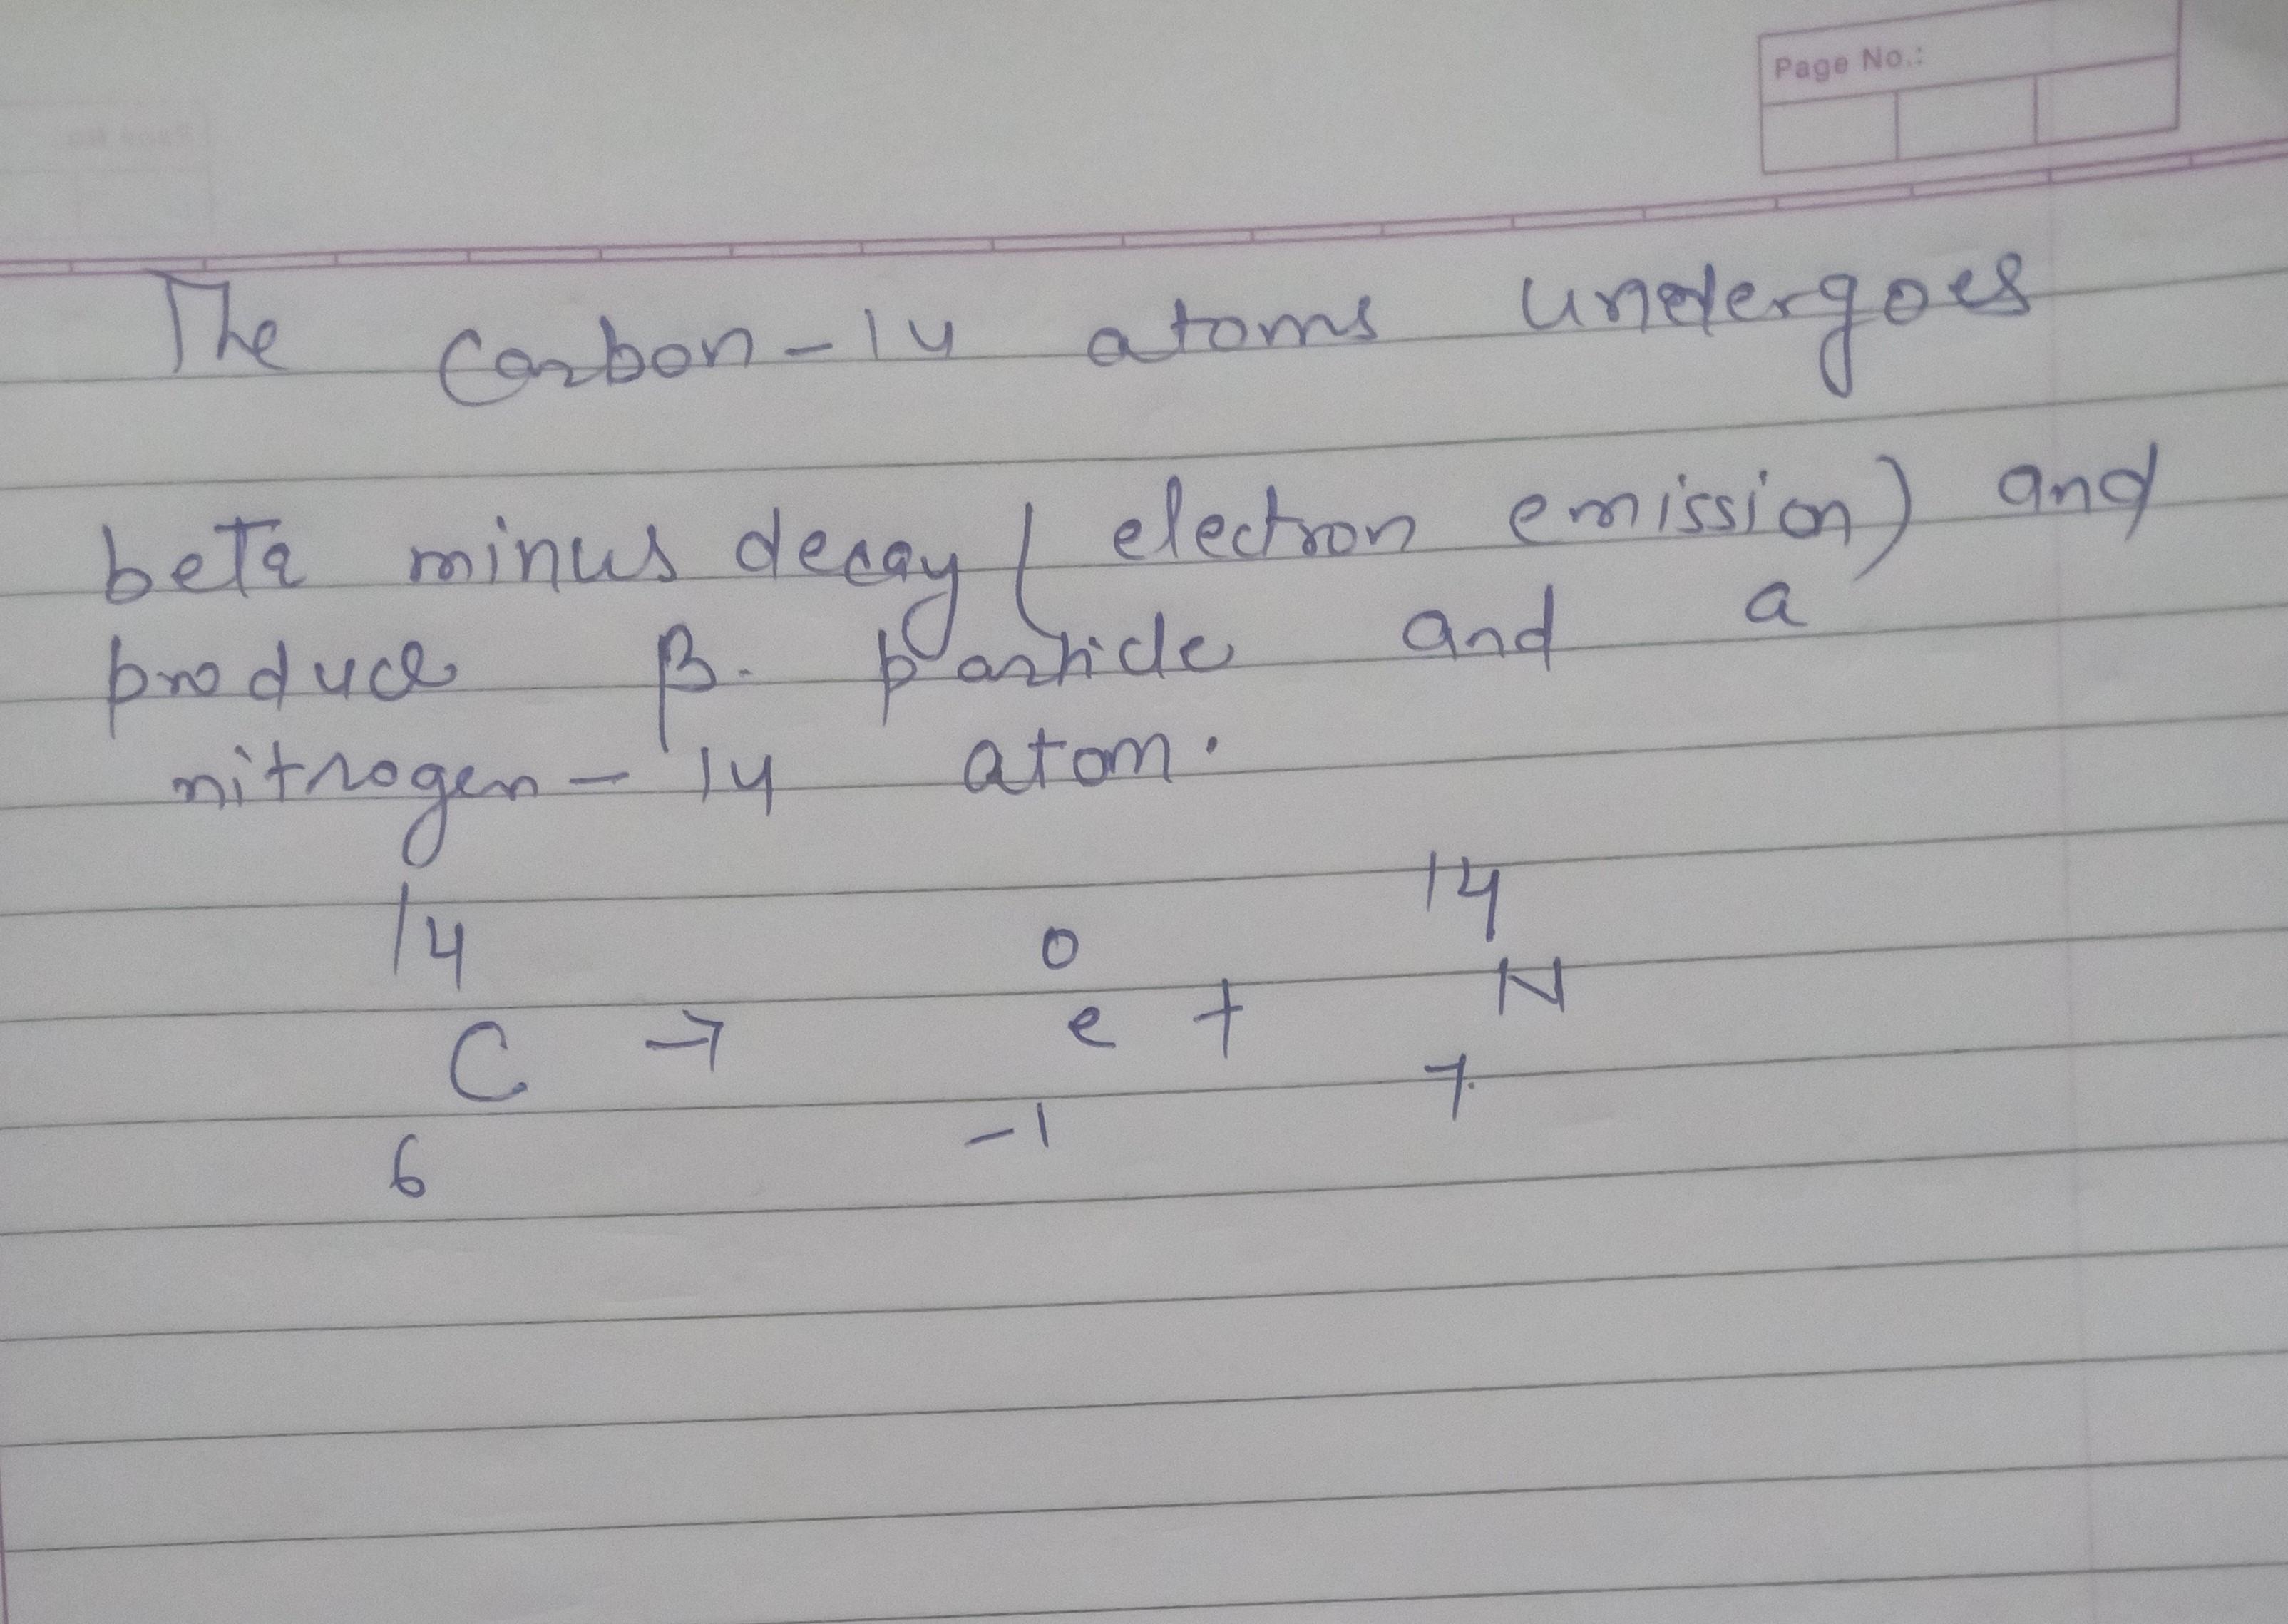 Page No.:
The Carbon-14 atoms undergoes
beta minus decay (electron emission) and
produce β- particle and a
nitrogen-14 atom.
14 0 14
C → e + N
6 -1 7